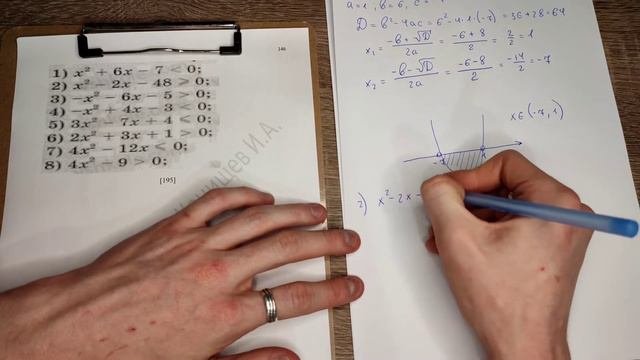 146
1) x² + 6x − 7 < 0;
2) x² − 2x − 48 > 0;
3) −x² − 6x − 5 > 0;
4) −x² + 4x − 3 < 0;
5) 3x² − 7x + 4 < 0;
6) 2x² + 3x + 1 > 0;
7) 4x² − 12x < 0;
8) 4x² − 9 > 0;
[195]
И.А.
D = b² − 4ac = 6² − 4·1·(−7) = 36 + 28 = 64
x₁ = (−b + √D)/2a = (−6 + 8)/2 = 2/2 = 1
x₂ = (−b − √D)/2a = (−6 − 8)/2 = −14/2 = −7
x ∈ (−7, 1)
−7
2) x² − 2x −